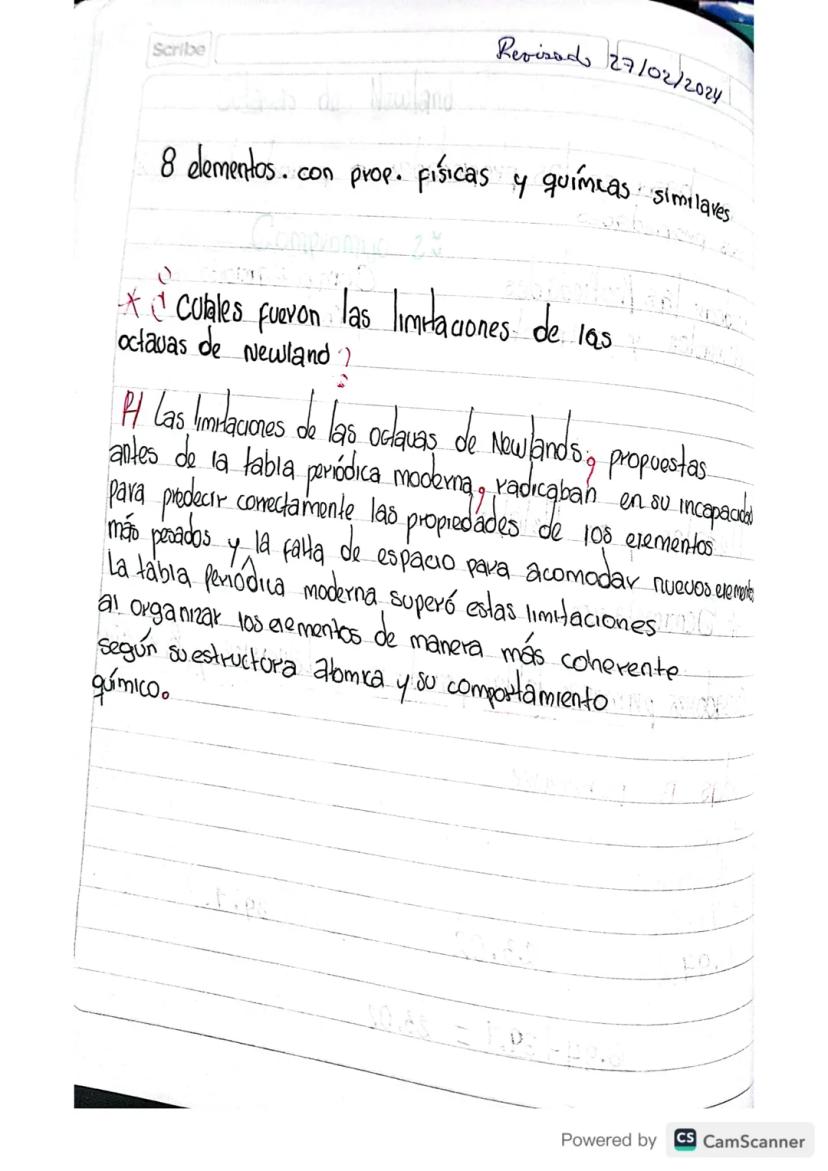 Scribe
Revisado 27/02/2024
8 elementos. con prop. físicas y químicas similares
* ¿Cuáles fueron las limitaciones de las
octavas de Newland?
R/ Las limitaciones de las octavas de Newlands, propuestas
antes de la tabla periódica moderna, radicaban en su incapacidad
para predecir correctamente las propiedades de los elementos
más pesados y la falta de espacio para acomodar nuevos elementos
La tabla periódica moderna superó estas limitaciones
al organizar los elementos de manera más coherente
según su estructura atomica y su comportamiento
químico.
Powered by CS CamScanner